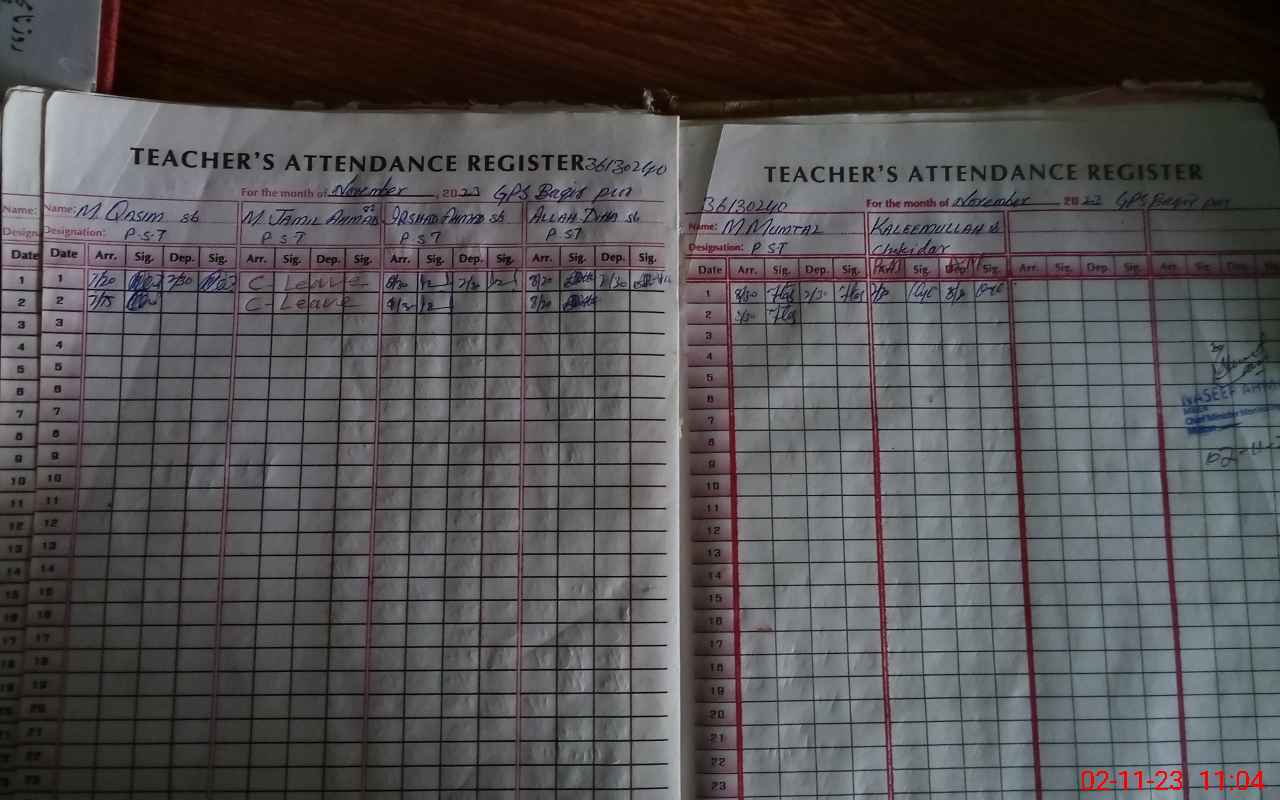 TEACHER'S ATTENDANCE REGISTER 36130240
For the month of November 2023 GPS Baqir pur
Name: Name: M. Qasim sb M. JAMIL AHMAD sb IRSHAD AHMAD sb ALLAH DITTA sb
Designation: P.S.T P S T P S T P ST
Date Date Arr. Sig. Dep. Sig. Arr. Sig. Dep. Sig. Arr. Sig. Dep. Sig. Arr. Sig. Dep. Sig.
1 1 7/20 7/30 C- Leave 8/20 2/30 8/20 2/30
2 2 7/15 C- Leave 8/30 8/20
3 3
4 4
5 5
6 6
7 7
8 8
9 9
10 10
11 11
12 12
13 13
14 14
15 15
16 16
17 17
18 18
19 19
20 20
21 21
22 22
23 23
TEACHER'S ATTENDANCE REGISTER
36130240 For the month of November 2023 GPS Baqir pur
Name: M MUMTAZ KALEEMULLAH
Designation: P ST Chokidar
Date Arr. Sig. Dep. Sig. Arr. Sig. Dep. Sig. Arr. Sig. Dep. Sig. Arr. Sig. Dep. Sig.
1 8/30 2/30
2 8/30
3
4
5
6
7
8
9
10
11
12
13
14
15
16
17
18
19
20
21
22
23
NASEEF
02-11-
02-11-23 11:04